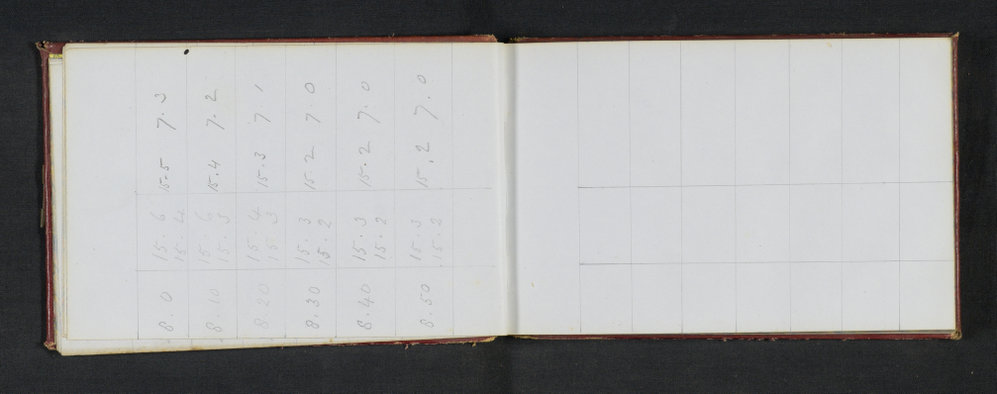 8.0 15.6 15.5 7.3
15.4
8.10 15.6 15.4 7.2
15.3
8.20 15.4 15.3 7.1
15.3
8.30 15.3 15.2 7.0
15.2
8.40 15.3 15.2 7.0
15.2
8.50 15.3 15.2 7.0
15.2